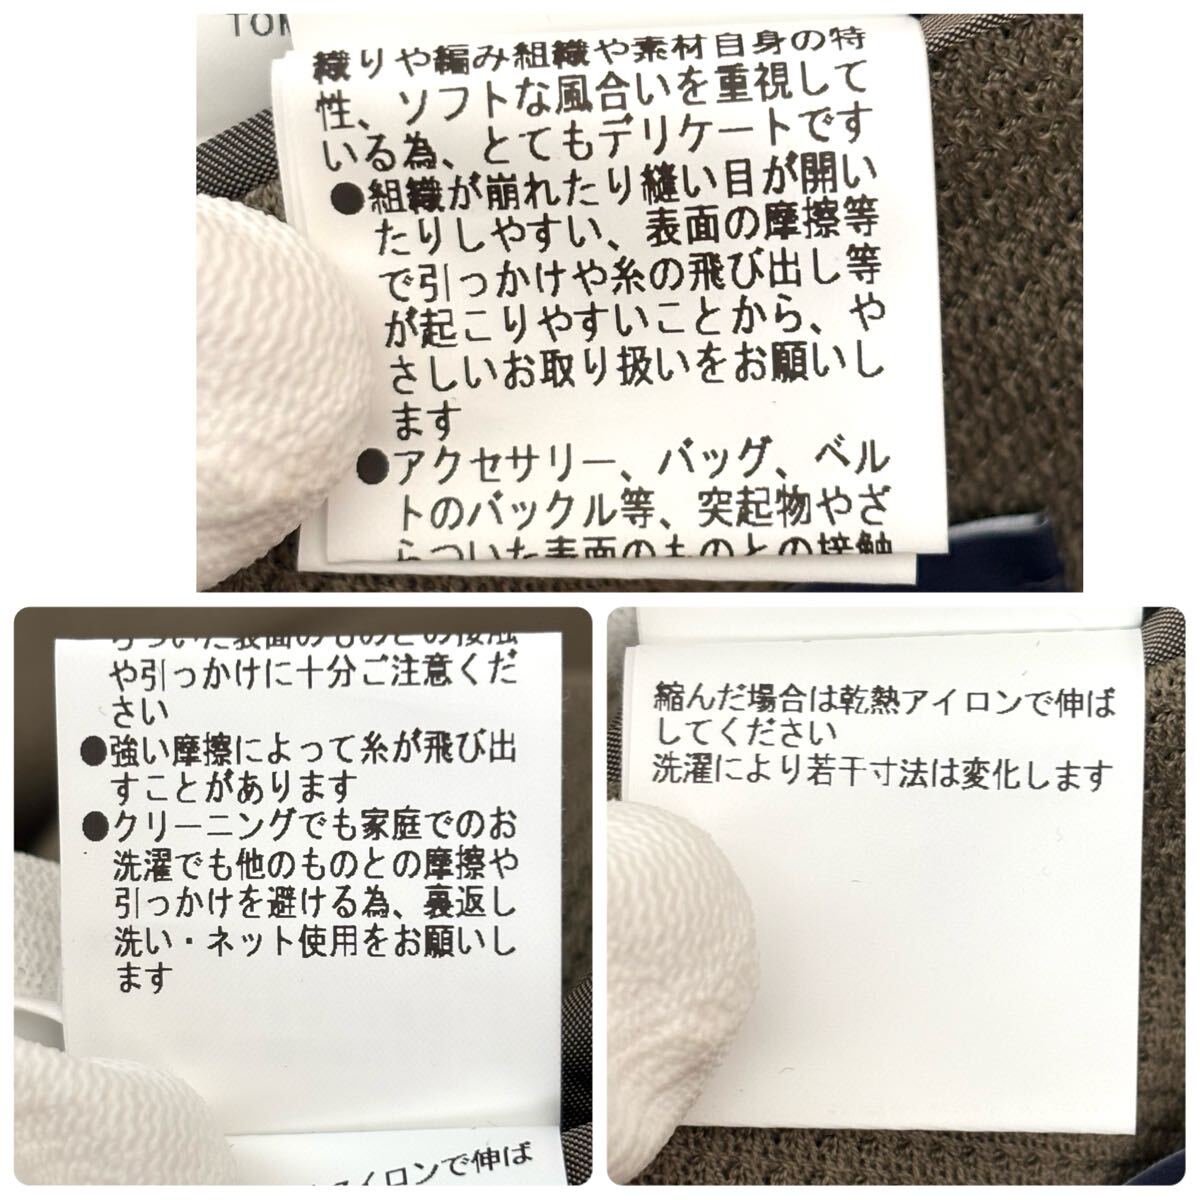 TOK
織りや編み組織や素材自身の特
性、ソフトな風合いを重視して
いる為、とてもデリケートです
●組織が崩れたり縫い目が開い
たりしやすい、表面の摩擦等
で引っかけや糸の飛び出し等
が起こりやすいことから、や
さしいお取り扱いをお願いし
ます
●アクセサリー、バッグ、ベル
トのバックル等、突起物やざ
らついた表面のものとの接触
らついた表面のものとの接触
や引っかけに十分ご注意くだ
さい
●強い摩擦によって糸が飛び出
すことがあります
●クリーニングでも家庭でのお
洗濯でも他のものとの摩擦や
引っかけを避ける為、裏返し
洗い・ネット使用をお願いし
ます
アイロンで伸ば
縮んだ場合は乾熱アイロンで伸ば
してください
洗濯により若干寸法は変化します